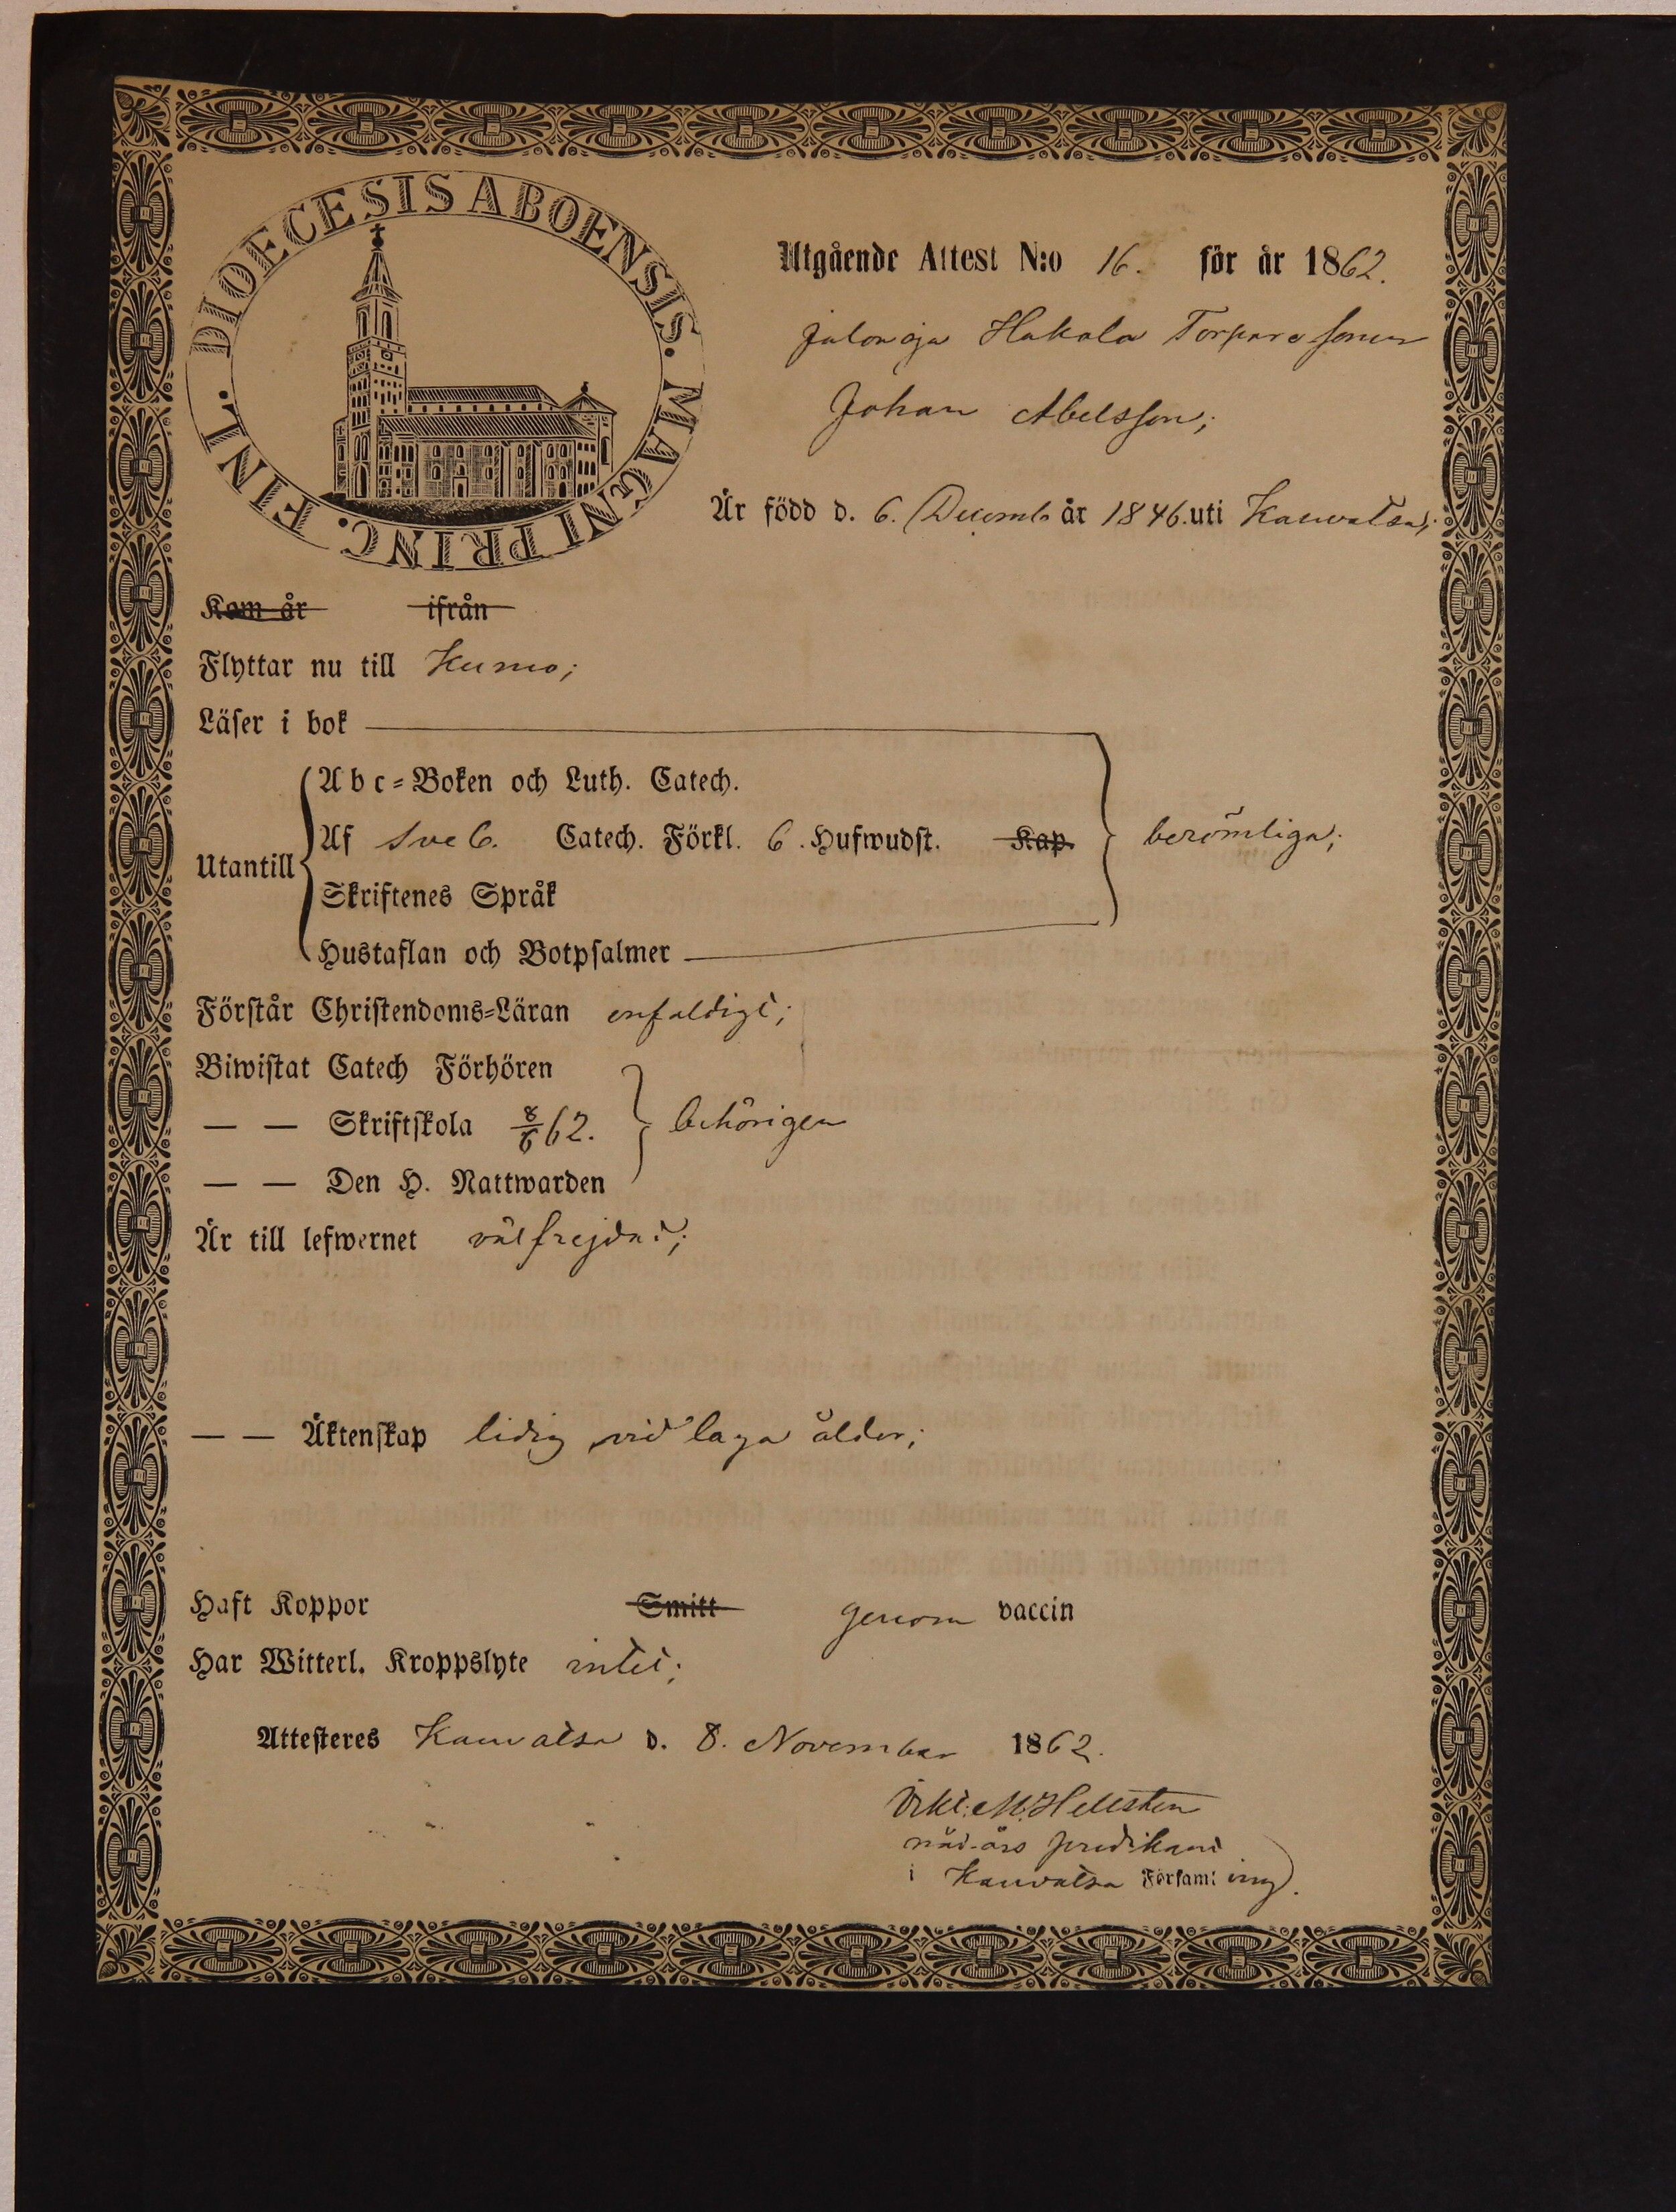 DIOECESIS ABOENSIS. MAGNI PRINC. FINL.
Utgående Attest N:o 16. för år 1862.
Jalonoja Hakola Torpare sonen
Johan Abelsson;
Är född d. 6. Decemb år 1846. uti Kauvatsa;
Kom år ifrån
Flyttar nu till Kumo;
Läser i bok
Abc=Boken och Luth. Catech.
Utantill Af Sveb. Catech. Förkl. 6. Hufwudst. Kap. berömliga;
Skriftenes Språk
Hustaflan och Botpsalmer
Förstår Christendoms=Läran enfaldigt;
Biwistat Catech Förhören
— — Skriftskola 8/6 62. behörigen
— — Den H. Nattwarden
Är till lefwernet välfrejdad;
— — Äktenskap ledig vid laga ålder;
Haft Koppor Smitt genom vaccin
Har Witterl. Kroppslyte intet;
Attesteres Kauvatsa d. 8. November 1862.
M. Hellsten
nåd-års predikant
i Kauvatsa Församl ing.